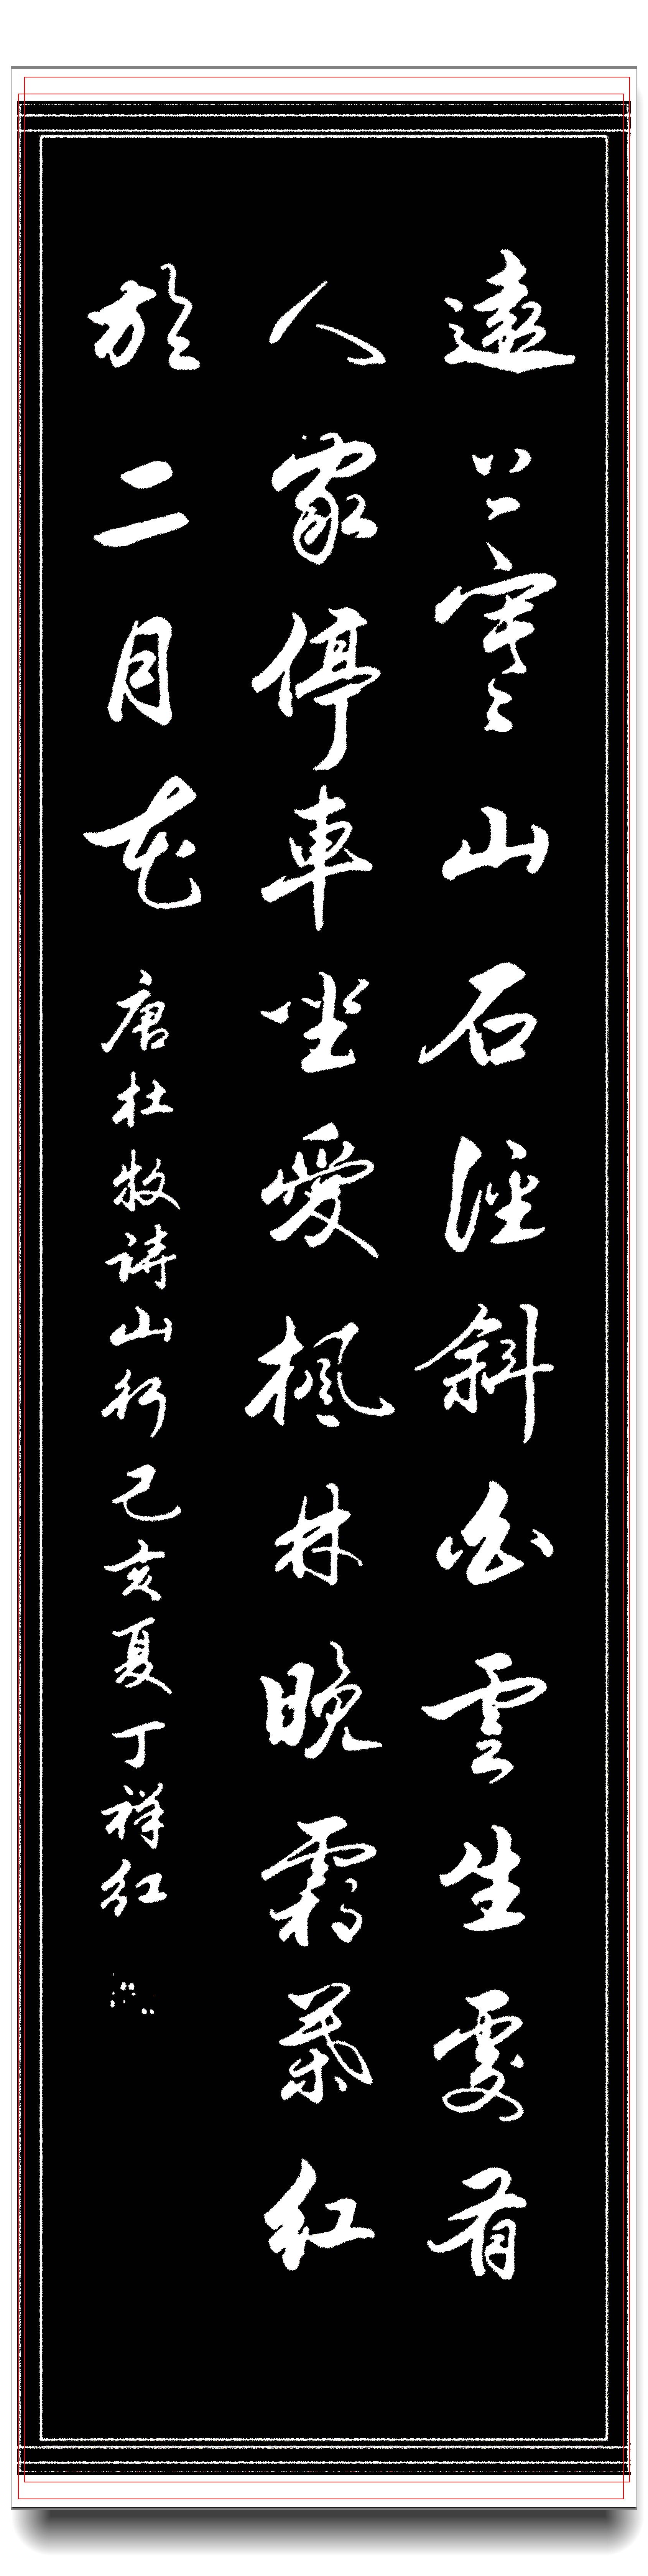 遠上寒山石徑斜白雲生處有
人家停車坐愛楓林晚霜葉紅
於二月花 唐杜牧詩山行己亥夏丁祥紅